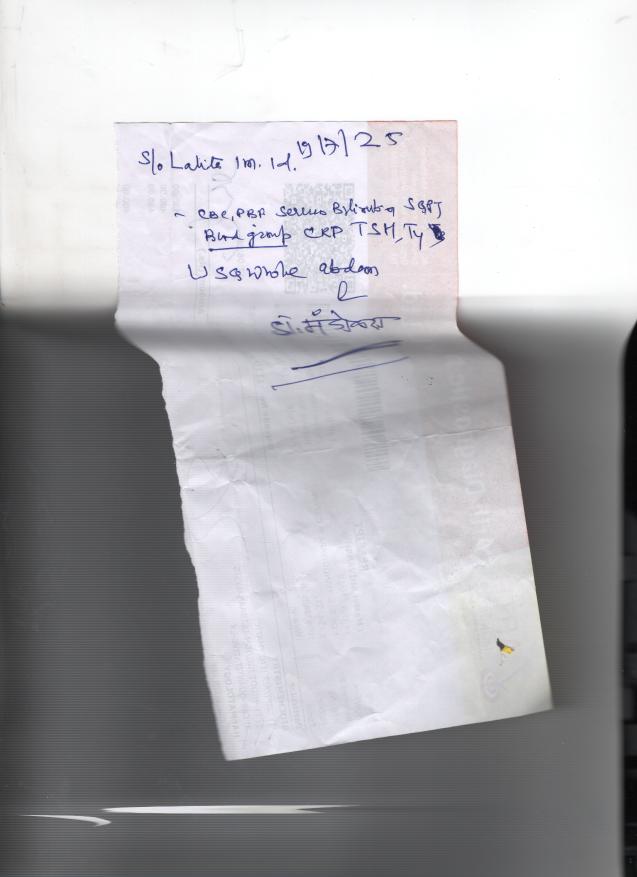 S/o Lalita 1m. 1d. 19/7/25
~ CBC, PBF Serum Bilirubin SGPT
Blood group CRP TSH, T4
USG Whole abdom
डॉ.